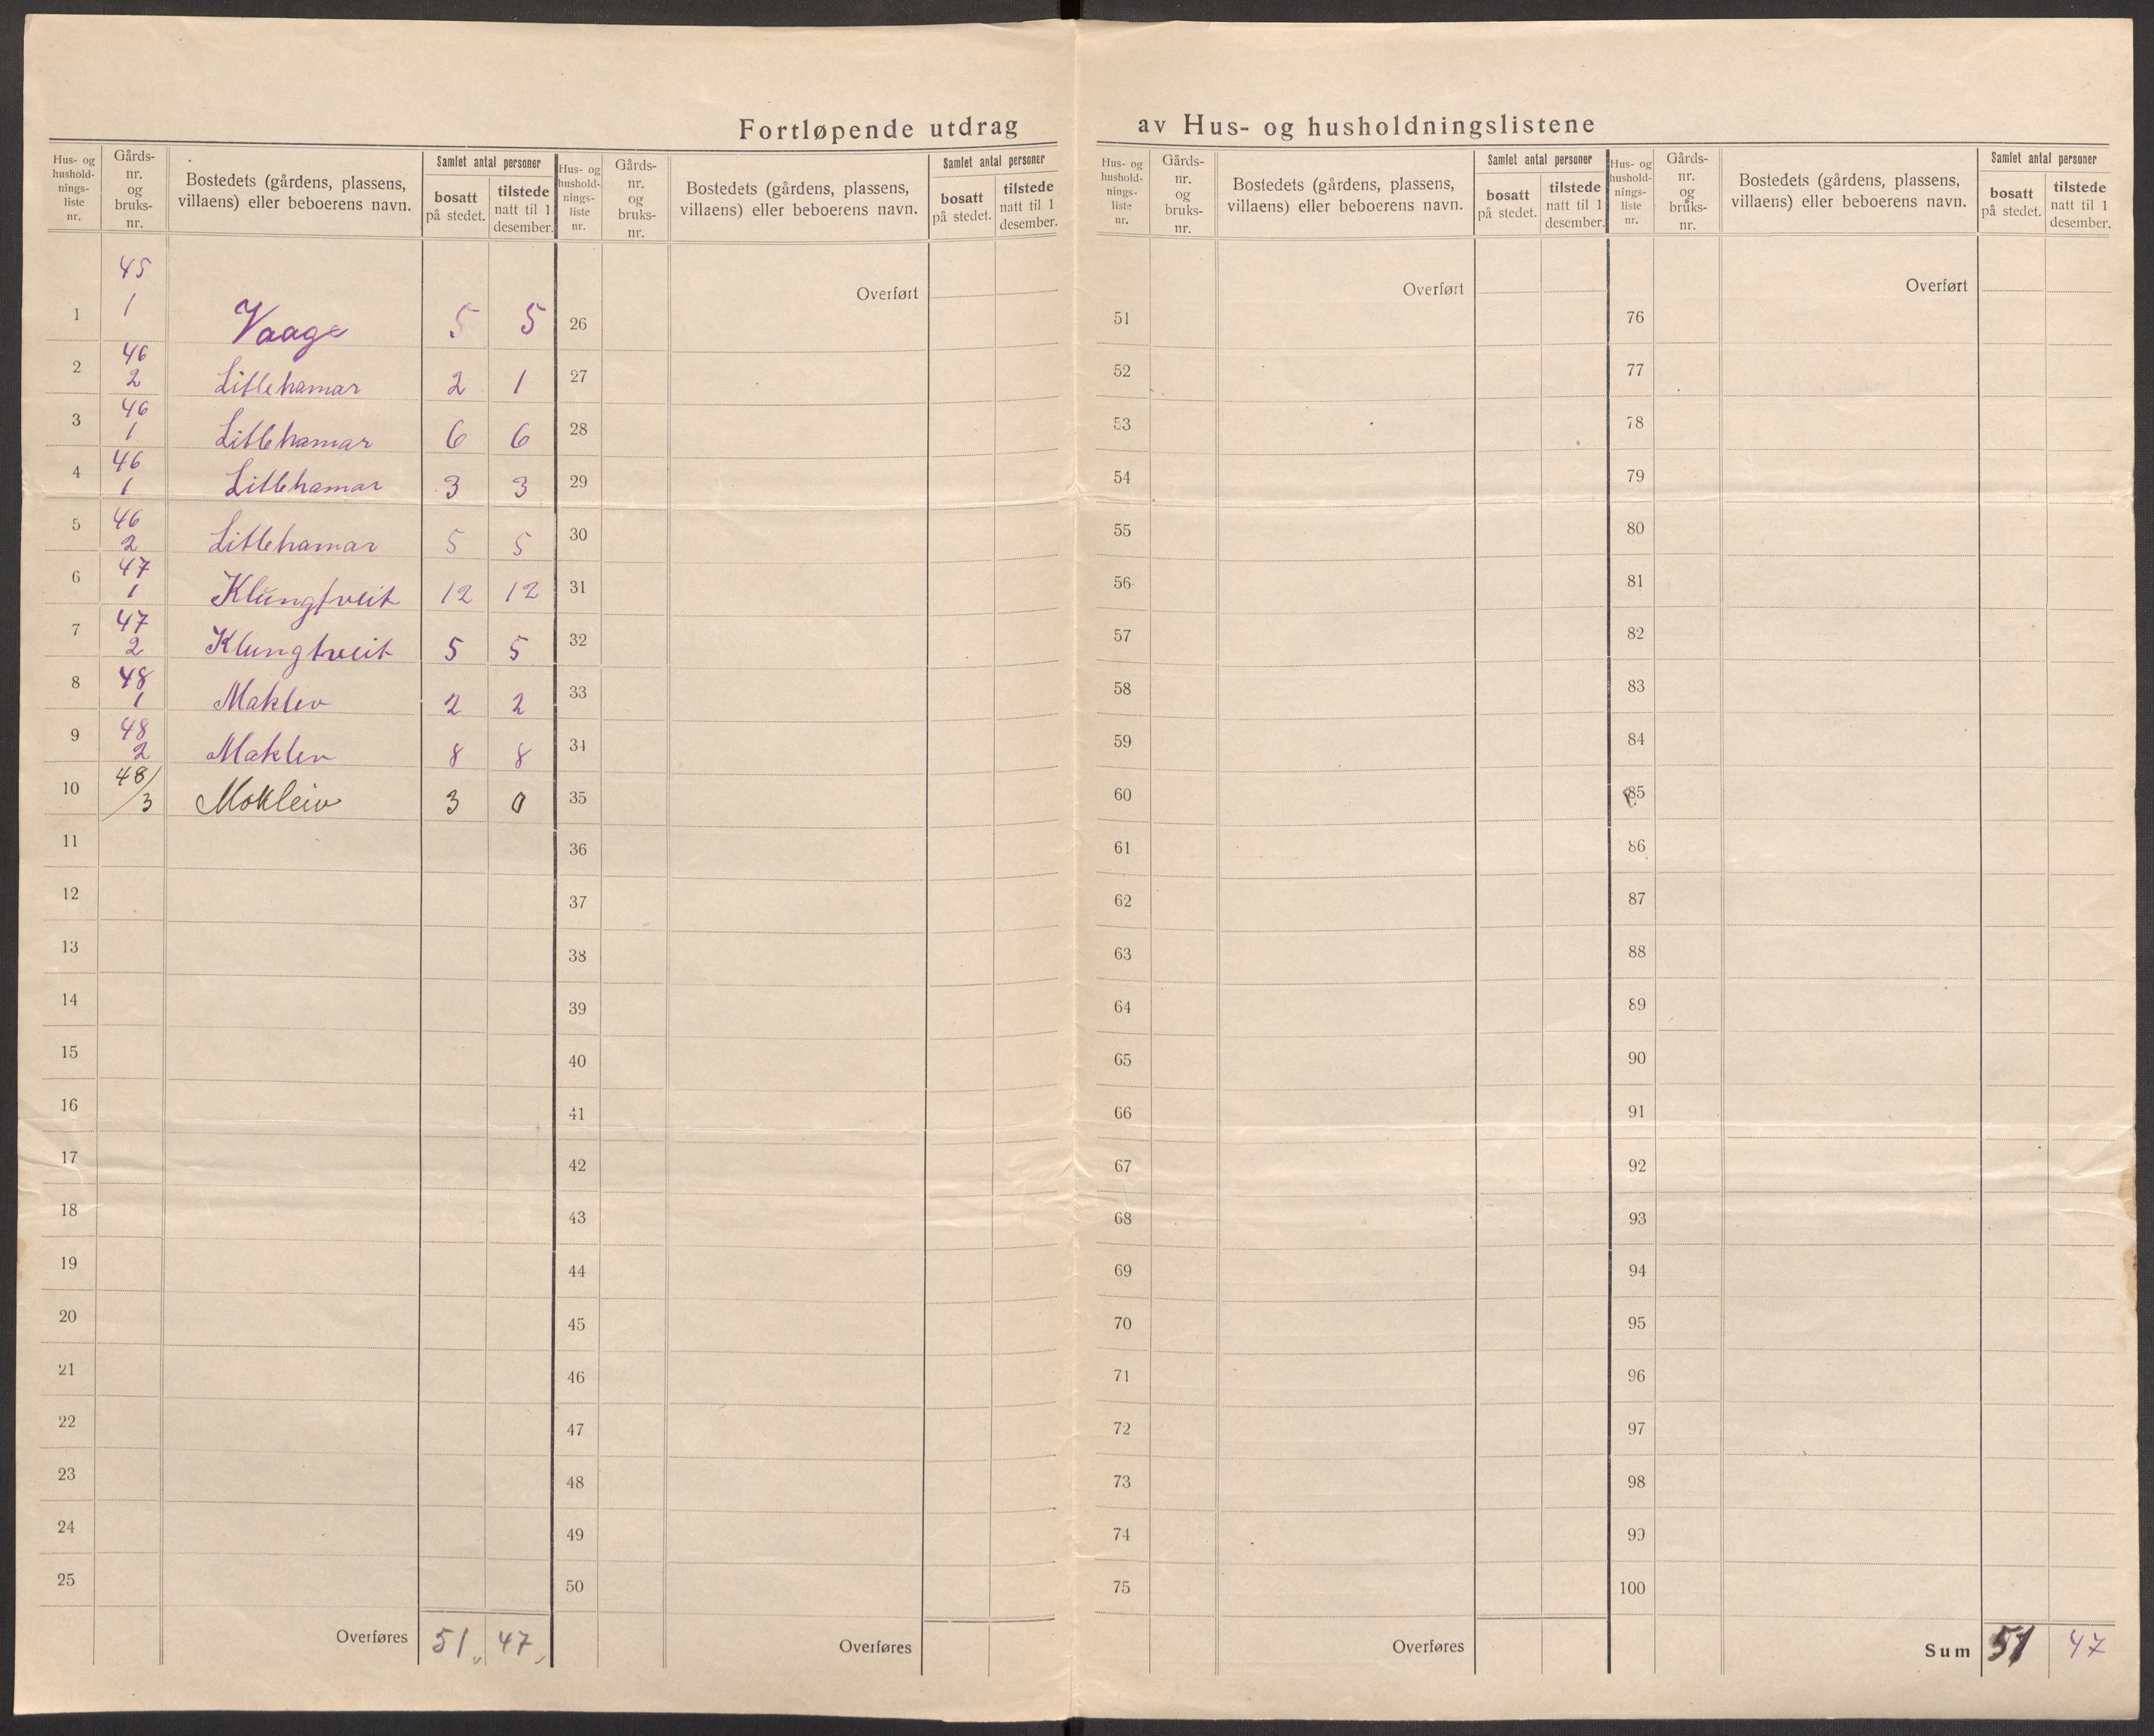 Fortløpende utdrag av Hus- og husholdningslistene
Hus- og hushold-nings-liste nr.
Gårds-nr. og bruks-nr.
Bostedets (gårdens, plassens, villaens) eller beboerens navn.
Samlet antal personer
bosatt på stedet.
tilstede natt til 1 desember.
1 45 1 Vaage 5 5
2 46 2 Litlehamar 2 1
3 46 1 Litlehamar 6 6
4 46 1 Litlehamar 3 3
5 46 2 Litlehamar 5 5
6 47 1 Klungtveit 12 12
7 47 2 Klungtveit 5 5
8 48 1 Maklev 2 2
9 48 2 Maklev 8 8
10 48/3 Mokleiv 3 0
11
12
13
14
15
16
17
18
19
20
21
22
23
24
25
Overføres 51 47
Hus- og hushold-nings-liste nr.
Gårds-nr. og bruks-nr.
Bostedets (gårdens, plassens, villaens) eller beboerens navn.
Samlet antal personer
bosatt på stedet.
tilstede natt til 1 desember.
Overført
26
27
28
29
30
31
32
33
34
35
36
37
38
39
40
41
42
43
44
45
46
47
48
49
50
Overføres
Hus- og hushold-nings-liste nr.
Gårds-nr. og bruks-nr.
Bostedets (gårdens, plassens, villaens) eller beboerens navn.
Samlet antal personer
bosatt på stedet.
tilstede natt til 1 desember.
Overført
51
52
53
54
55
56
57
58
59
60
61
62
63
64
65
66
67
68
69
70
71
72
73
74
75
Overføres
Hus- og hushold-nings-liste nr.
Gårds-nr. og bruks-nr.
Bostedets (gårdens, plassens, villaens) eller beboerens navn.
Samlet antal personer
bosatt på stedet.
tilstede natt til 1 desember.
Overført
76
77
78
79
80
81
82
83
84
85
86
87
88
89
90
91
92
93
94
95
96
97
98
99
100
Sum 51 47